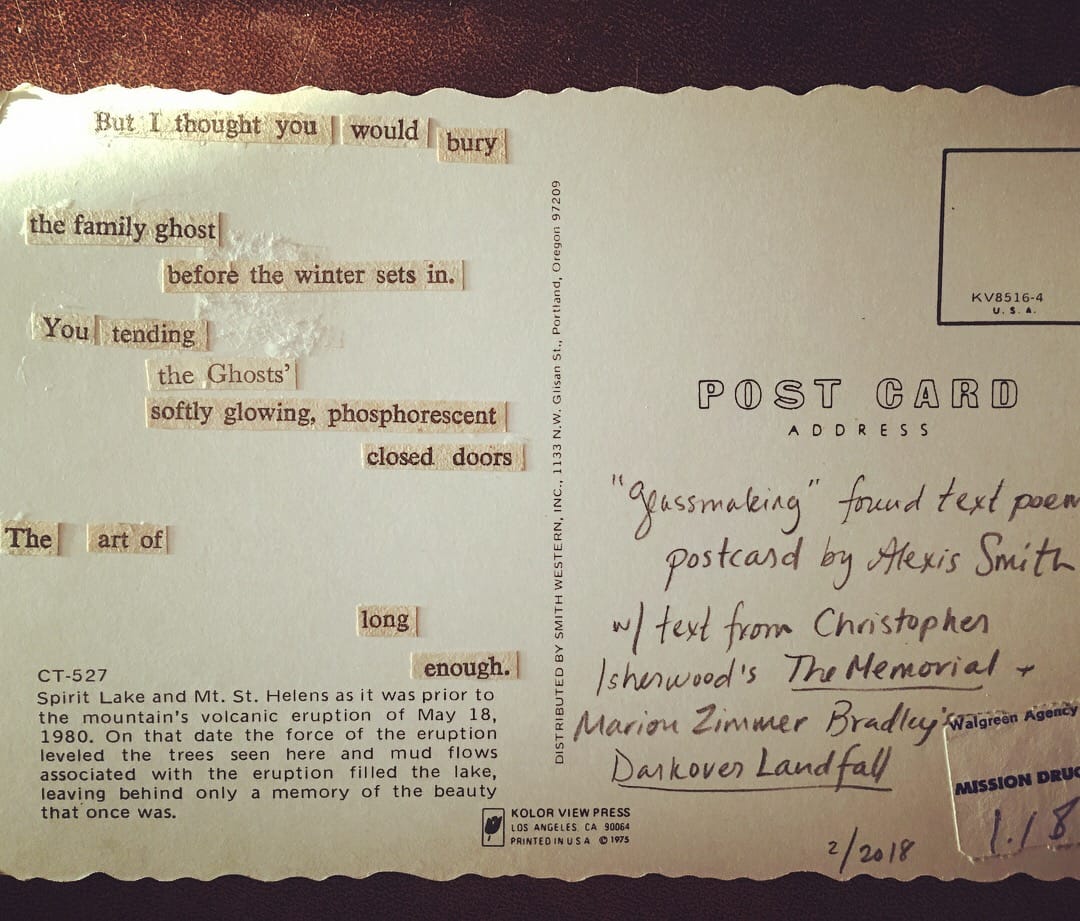 But I thought you would bury
the family ghost
before the winter sets in.
You tending
the Ghosts'
softly glowing, phosphorescent
closed doors
The art of
long
enough.
CT-527
Spirit Lake and Mt. St. Helens as it was prior to
the mountain's volcanic eruption of May 18,
1980. On that date the force of the eruption
leveled the trees seen here and mud flows
associated with the eruption filled the lake,
leaving behind only a memory of the beauty
that once was.
DISTRIBUTED BY SMITH WESTERN, INC., 1133 N.W. Glisan St., Portland, Oregon 97209
KOLOR VIEW PRESS
LOS ANGELES, CA 90064
PRINTED IN U S A © 1975
KV8516-4
U. S. A.
POST CARD
ADDRESS
"glassmaking" found text poem
postcard by Alexis Smith
w/ text from Christopher
Isherwood's The Memorial +
Marion Zimmer Bradley's
Darkover Landfall
2/2018
Walgreen Agency
MISSION DRUG
1.18